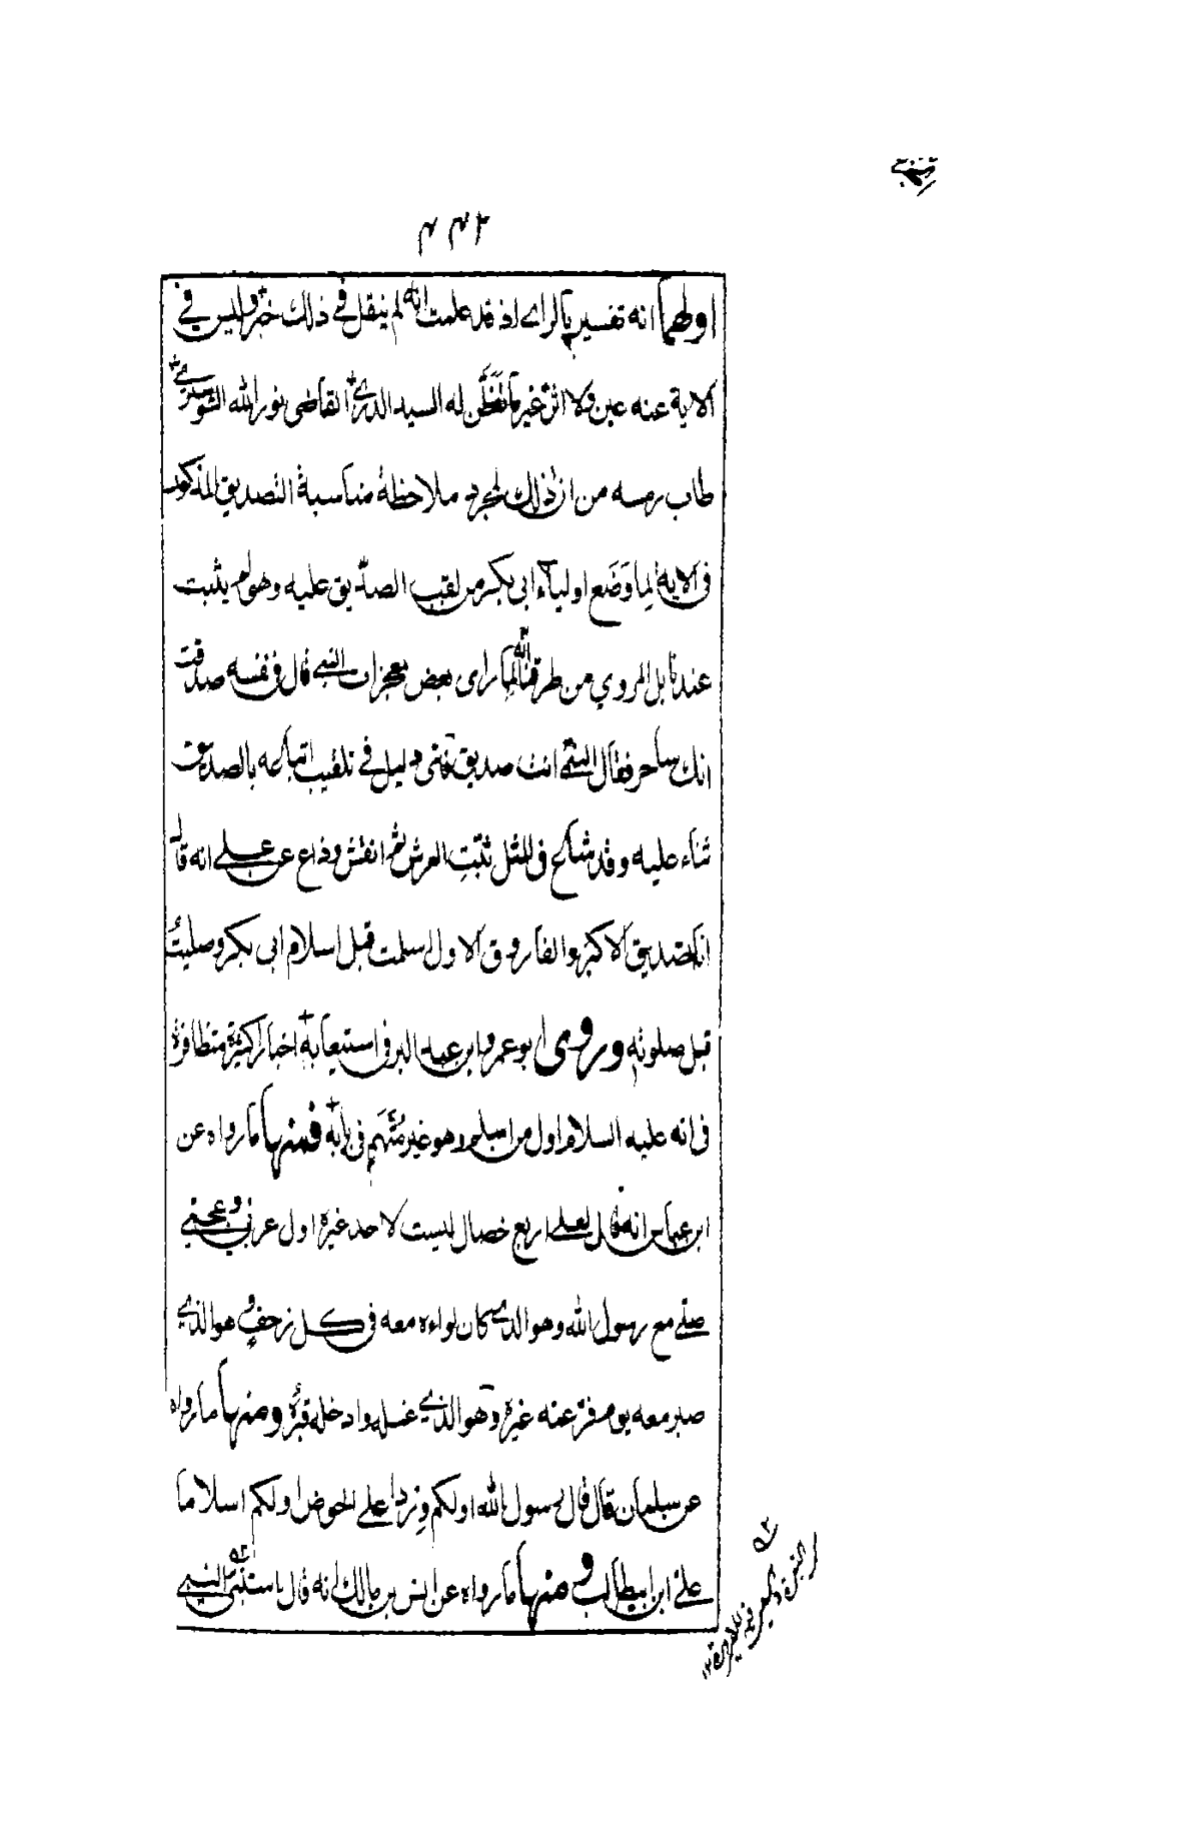 ۴۴۲
اولهما انه تفسير بالراى اذ قد علمت انه لم ينقل في ذلك خبر وليس في
الاية عنه عين ولا اثر غير ما تفطن له السيد الدرى القاضى نور الله الشوسترى
طاب رمسه من ان ذلك لمجرد ملاحظة مناسبة التصديق المذكور
فى الاية لما وَضَع اولياء ابى بكر من لقب الصدّيق عليه وهو لم يثبت
عندنا بل المروي من طرقنا انه لما راى بعض معجزات النبى قال فى نفسه صدقت
انك ساحر فقال النبى انت صديق فاى دليل في تلقيب اتباعه بالصديق
ثناء عليه وقد شاع فى المثل ثبّت العرش ثم انقش وذاع عن على انه قال
انا الصديق الاكبر والفاروق الاول اسلمت قبل اسلام ابى بكر وصليتُ
قبل صلوته وروى ابو عمرو ابن عبد البر فى استيعابه اخبارا كثيرة متظافرة
فى انه عليه السلام اول من اسلم وهو غير متّهم فى بابه فمنها ما رواه عن
ابن عباس انه قال لعلى اربع خصال ليست لاحد غيره اول عربي وعجمى
صلى مع رسول الله وهو الذى كان لواءه معه فى كل زحف وهو الذى
صبر معه يوم فر عنه غيره وهو الذي غسله وادخله قبره ومنها ما رواه
عن سلمان قال قال رسول الله اولكم ورداً على الحوض اولكم اسلاما
على ابن ابيطالب ومنها ما رواه عن انس بن مالك انه قال استنبئ النبى